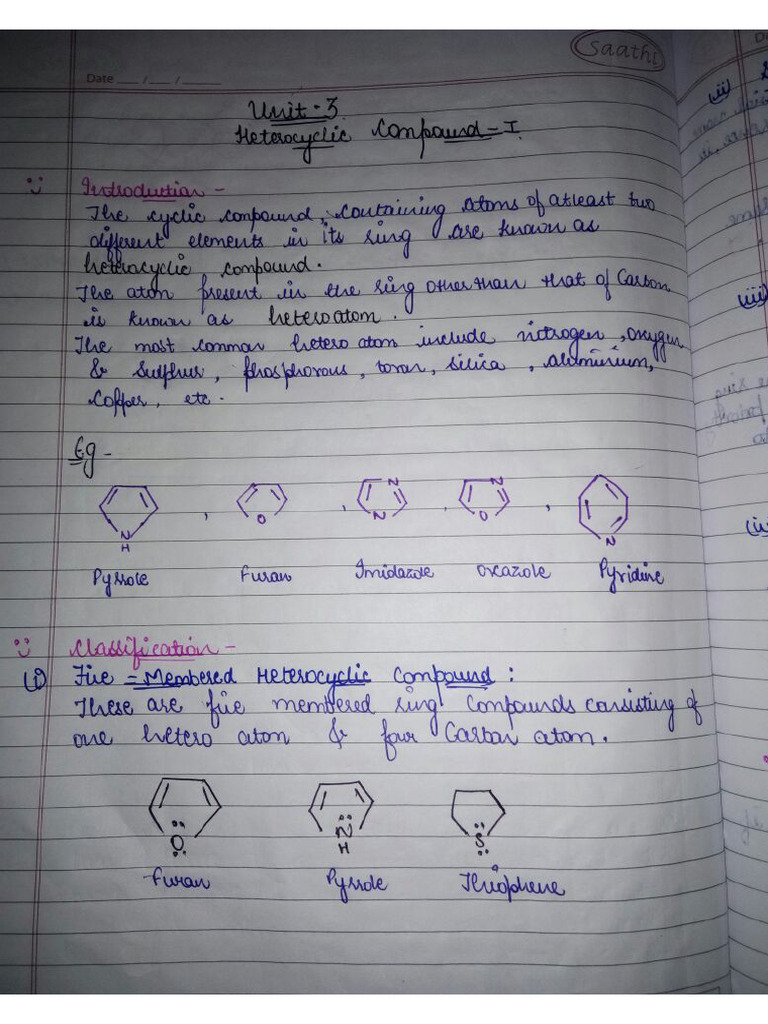 saathi
Date ___/___/___
Unit-3
Heterocyclic Compound-I
Introduction -
The cyclic compound, containing atoms of atleast two
different elements in its ring are known as
heterocyclic compound.
The atom present in the ring other than that of Carbon
is known as heteroatom.
The most common hetero atom include nitrogen, oxygen
& Sulphur, phosphorous, toran, silica, aluminium,
Copper, etc.
Eg -
N
H
O
N
N
N
O
N
Pyrrole Furan Imidazole Oxazole Pyridine
Classification -
(i) Five-Membered Heterocyclic Compound:
These are five membered ring Compounds consisting of
one hetero atom & four Carbon atom.
O
N
H
S
Furan Pyrrole Thiophene